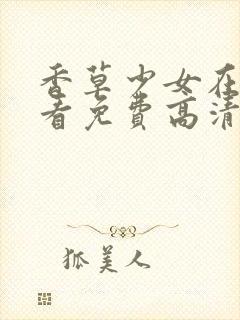 香草少女在
看免费高清
狐美人